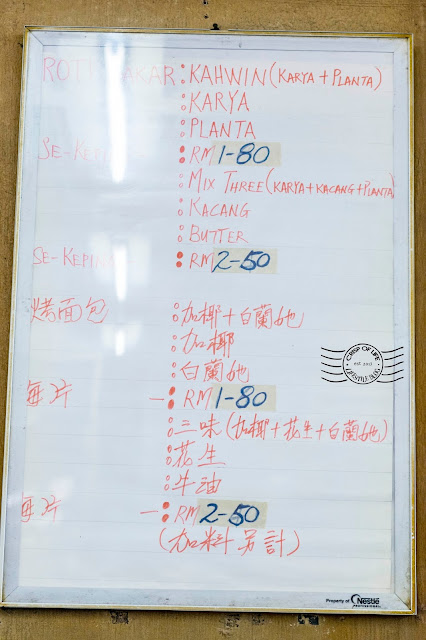 ROTI BAKAR : KAHWIN (KARYA + PLANTA)
: KARYA
: PLANTA
SE-KEPING : RM 1-80
: MIX THREE (KARYA+KACANG+PLANTA)
: KACANG
: BUTTER
SE-KEPING : RM 2-50
烤面包 : 加椰+白蘭她
: 加椰
: 白蘭她
每片 — : RM 1-80
: 三味(加椰+花生+白蘭她)
: 花生
: 牛油
每片 — : RM 2-50
(加料另計)
CRISP OF LIFE
est. 2013
LIFESTYLE BLOG
Property of Nestlé
PROFESSIONAL